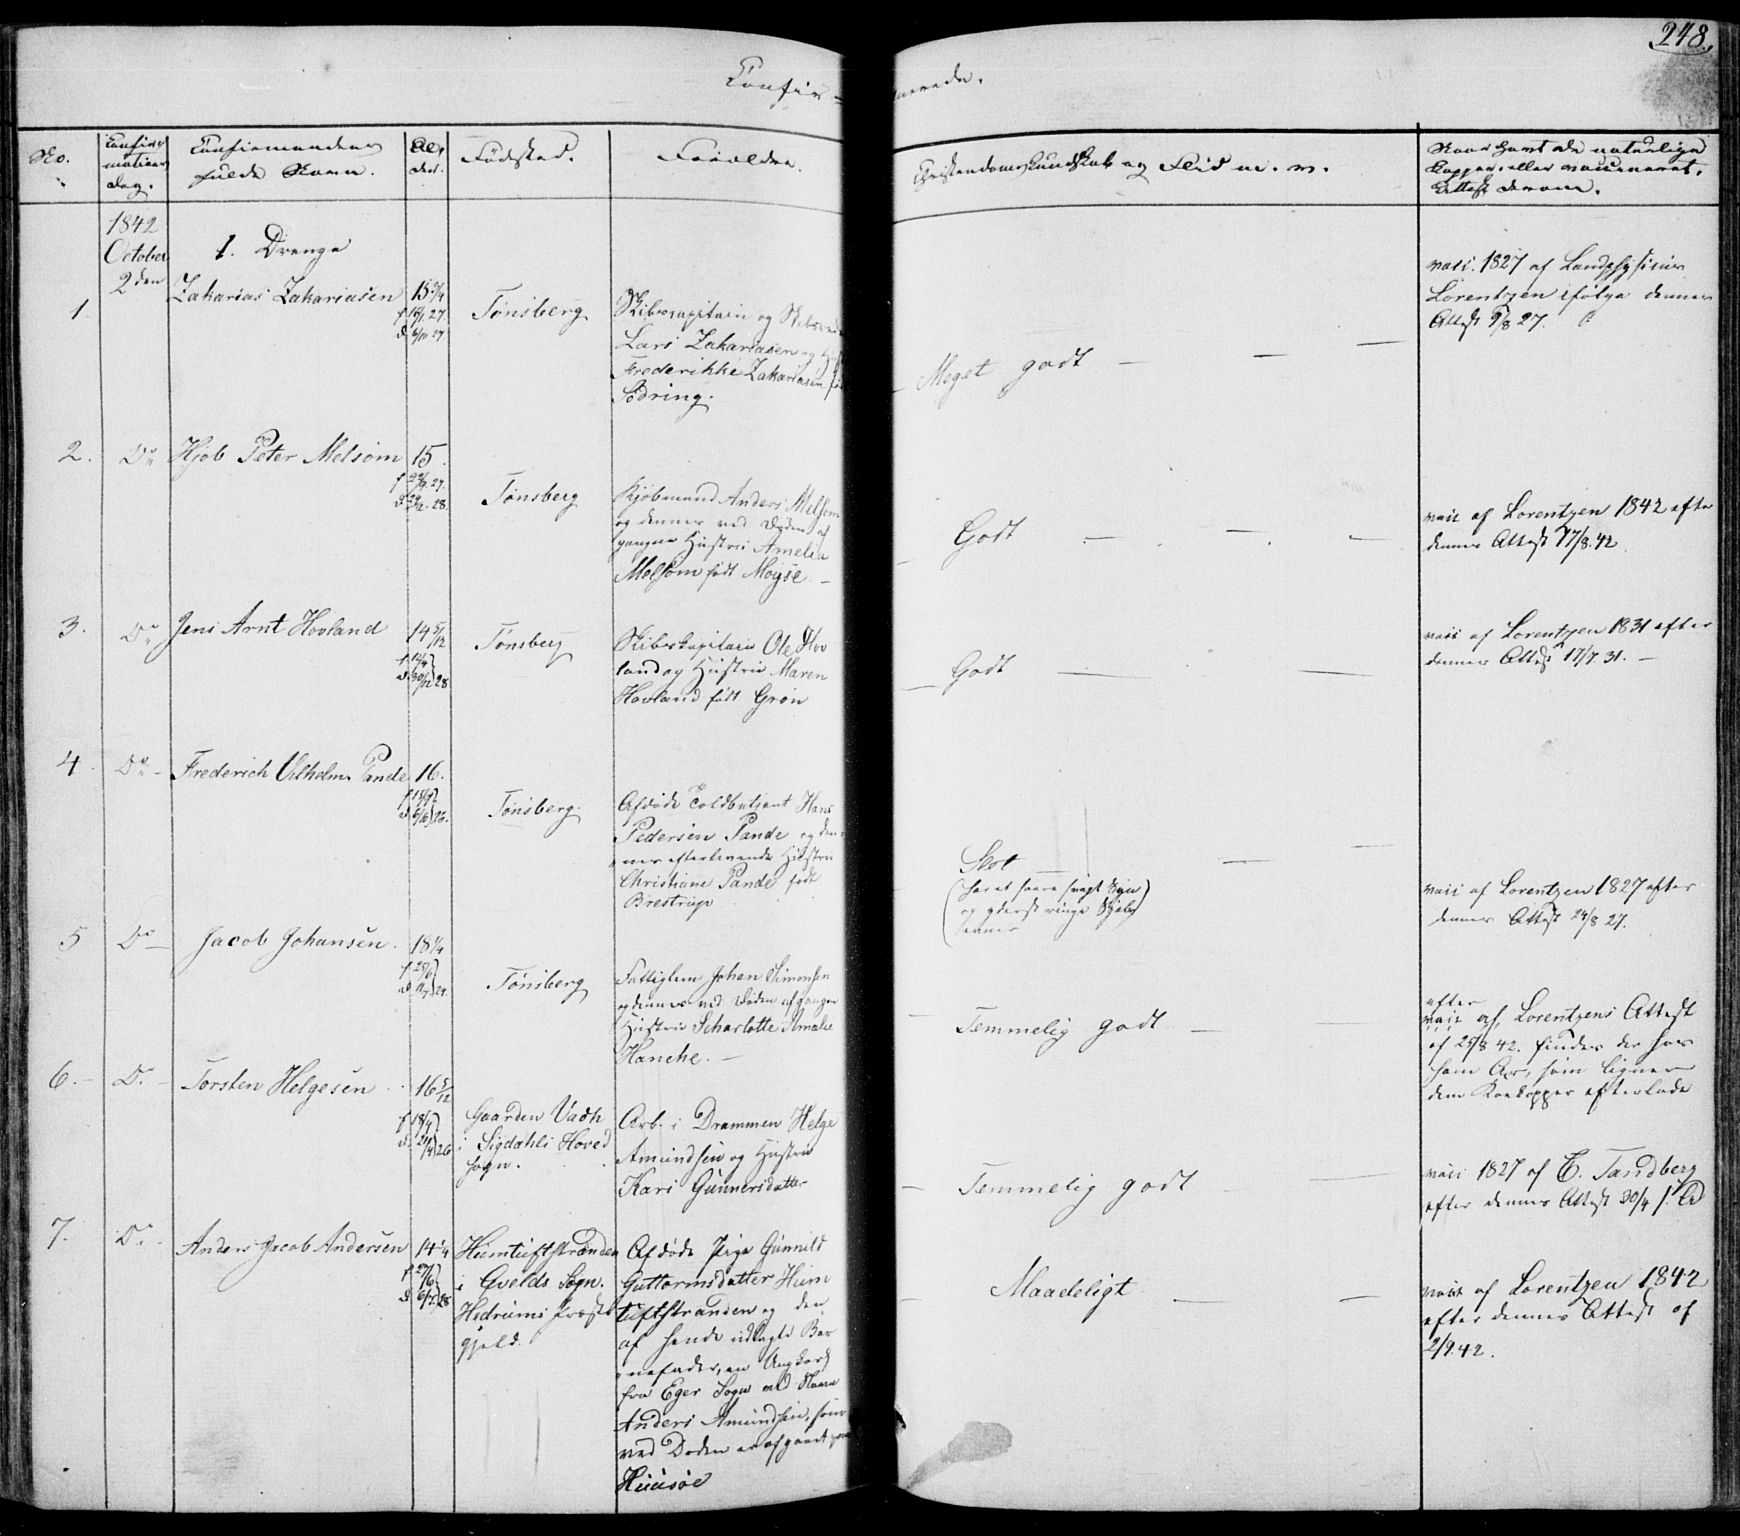 248.
Confir=
merede.
No.
Confir-
mations
Dag.
Confirmandens
fulde Navn.
Al-
der.
Fødsted.
Forældre.
Christendomskundskab og Flid m. m.
Naar havt de naturlige
Kopper, eller vaccineret.
Attest derom.
1842
October
2den
1. Drenge
1.
Zakarias Zakariasen
15 3/4
Tønsberg
Skibscapitain og
Lars Zakariasen og
Frederikke Zakariasen
Sødring.
Meget godt
vacc. 1827 af Landphysicus
Lorentzen ifølge dennes
Attest 9/8 27.
2.
Do
Hjob Peter Melsom
15.
Tønsberg
Kjøbmand Anders Melsom
og dennes ved Døden af
gangne Hustru Amelia
Melsom født Moyse.
Godt
vacc af Lorentzen 1842 efter
dennes Attest 17/8.42
3.
Do
Jens Arnt Hovland
14 5/12
Tønsberg
Skibskapitain Ole Hov
land og Hustru Maren
Hovland født Grøn
Godt
vacc af Lorentzen 1831 efter
dennes Attest 17/7 31.
4.
Do
Frederich Vilhelm Pande
16.
Tønsberg.
Afdøde Toldbetjent Hans
Pedersen Pande og den-
nes efterlevende Hustru
Christiane Pande født
Brestrup
Slet
(har et svagt Syn
og yderst ringe
vacc af Lorentzen 1827 efter
dennes Attest 24/8 27.
5
Do
Jacob Johansen.
18 1/4
Tønsberg
Fattiglem Johan Simonsen
og dennes ved Døden afgangne
Hustru Scharlotte Amalie
Hanche.
Temmelig godt
efter
vacc af Lorentzens Attest
af 25/8 42. findes der hos
ham Ar, som ligner
dem Kokopper efterlade
6.
Do
Torsten Helgesen
16 5/12
Gaarden Vadh
i Sigdahls Hoved
sogn.
Arb. i Drammen Helge
Amundsen og Hustru
Kari Gunnersdatter
Temmelig godt
vacc 1827 af C. Tandberg
efter dennes Attest 30/4 f. A
7.
Do
Anders Jacob Andersen
14 1/4
Humtuftstranden
i Qvelds Sogn.
Hedrums Præste
gjeld.
Afdøde Pige Gunnild
Guttormsdatter Hum
tuftstranden og den
af hende udlagte Bar
nefader, en Ungkarl
fra Eger Sogn ved Navn
Anders Amundsen, som
ved Døden er afgaaet paa
Huusøe
Maadeligt
vacc af Lorentzen 1842
efter dennes Attest af
2/9.42.